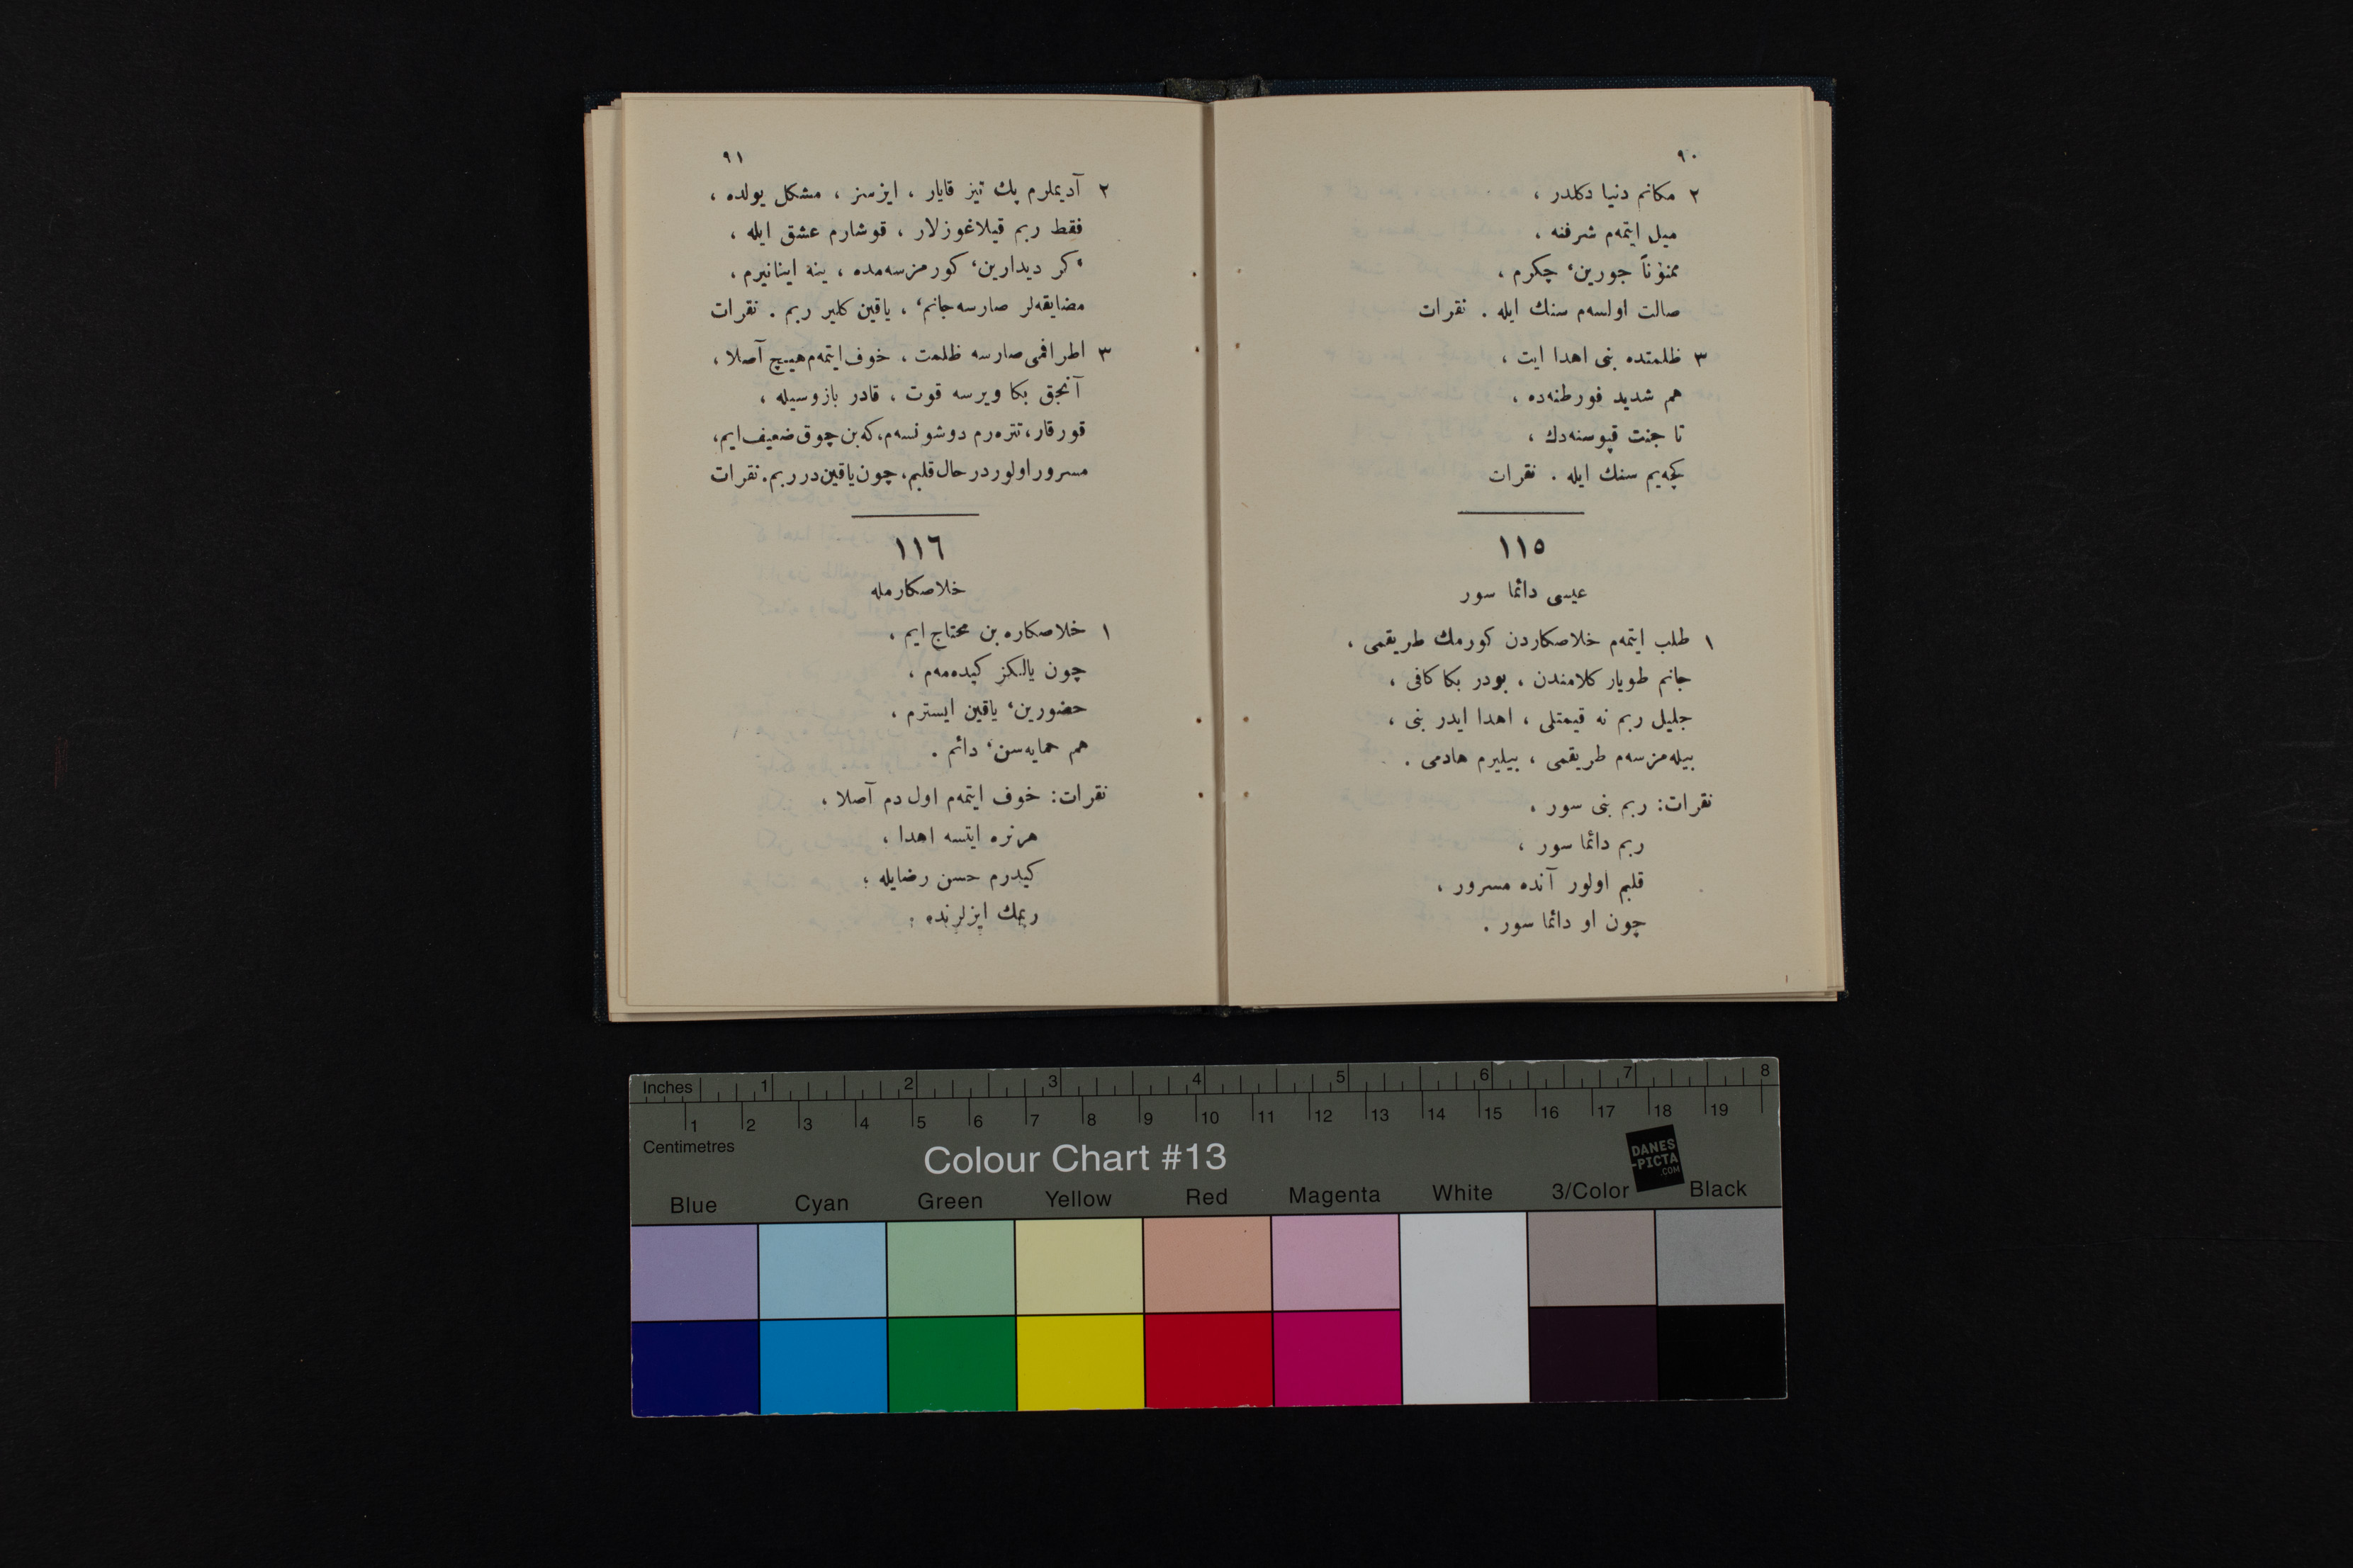 ٩٠
٢ مكانم دنيا دكلدر ،
ميل ايتمه‌م شرفنه ،
ممنوناً جورينۀ چكرم ،
صالت اولسه‌م سنك ايله . نقرات
٣ ظلمتده بنى اهدا ايت ،
هم شديد فورطنه‌ده ،
تا جنت قپوسنه‌دك ،
كچه‌يم سنك ايله . نقرات
١١٥
عيسى دائما سور
١ طلب ايتمه‌م خلاصكاردن كورمك طريقمى ،
جانم طويار كلامندن ، بودر بكا كافى ،
جليل ربم نه قيمتلى ، اهدا ايدر بنى ،
بيله‌مزسه‌م طريقمى ، بيليرم هادمى .
نقرات: ربم بنى سور ،
ربم دائما سور ،
قلبم اولور آنده مسرور ،
چون او دائما سور .
٩١
٢ آديملرم پك تيز قايار ، ايزسز ، مشكل يولده ،
فقط ربم قيلاغوزلار ، قوشارم عشق ايله ،
كر ديدارين، كورمزسه‌مده ، ينه اينانيرم ،
مضايقه‌لر صارسه جانم، ، ياقين كلير ربم . نقرات
٣ اطرافمى صارسه ظلمت ، خوف ايتمه‌م هييچ آصلا ،
آنجق بكا ويرسه قوت ، قادر بازوسيله ،
قورقار، تتره‌رم دوشونسه‌م، كه بن چوق ضعيف ايم،
مسرور اولور در حال قلبم، چون ياقين در ربم . نقرات
١١٦
خلاصكارمله
١ خلاصكاره بن محتاج ايم ،
چون يالكز كيده‌مه‌م ،
حضورين، ياقين ايسترم ،
هم حمايه‌سن، دائم .
نقرات: خوف ايتمه‌م اول دم آصلا ،
هرنره ايتسه اهدا ،
كيدرم حسن رضايله ؛
ربمك ايزلرنده :
Inches 1 2 3 4 5 6 7 8
1 2 3 4 5 6 7 8 9 10 11 12 13 14 15 16 17 18 19
Centimetres
Colour Chart #13
DANES
-PICTA
.COM
Blue Cyan Green Yellow Red Magenta White 3/Color Black